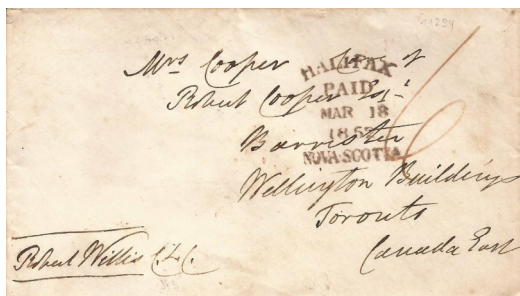 Mrs Cooper Care of
Robert Cooper Esqr
Barrister
Wellington Buildings
Toronto
Canada East
HALIFAX
PAID
MAR 18
NOVA-SCOTIA
6
Robert Willis